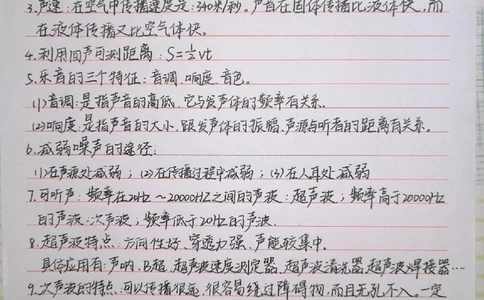 3.声速:在空气中传播速度是:340米/秒。声音在固体传播比液体快,而
在液体传播又比空气体快。
4.利用回声可测距离:S=½vt
5.乐音的三个特征:音调、响度、音色。
(1)音调:是指声音的高低,它与发声体的频率有关系。
(2)响度:是指声音的大小,跟发声体的振幅、声源与听者的距离有关系。
6.减弱噪声的途径:
(1)在声源处减弱;(2)在传播过程中减弱;(3)在人耳处减弱
7.可听声:频率在20Hz~20000HZ之间的声波:超声波;频率高于20000Hz
的声波:次声波;频率低于20Hz的声波.
8.超声波特点:方向性好、穿透力强、声能较集中。
具体应用有:声呐、B超、超声波速度测定器、超声波清洗器、超声波焊接器…
9.次声波的特点:可以传播很远,很容易绕过障碍物,而且无孔不入。一定